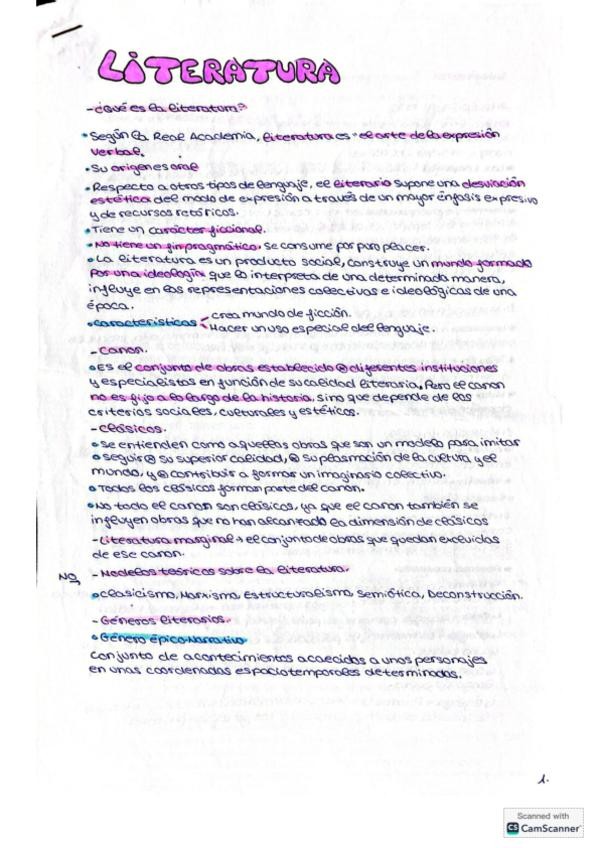 LITERATURA
- ¿Qué es la literatura?
• Según la Real Academia, literatura es "el arte de la expresión
verbal.
• Su orígenes oral
• Respecto a otros tipos de lenguaje, el literario supone una desviación
estética del modo de expresión a través de un mayor énfasis expresivo
y de recursos retóricos.
• Tiene un carácter ficcional.
• No tiene un fin pragmático, se consume por puro placer.
• La literatura es un producto social, construye un mundo formado
por una ideología que la interpreta de una determinada manera,
influye en las representaciones colectivas e ideológicas de una
época.
• Características < crea mundo de ficción.
Hacer un uso especial del lenguaje.
- Canon.
• Es el conjunto de obras establecido @ diferentes instituciones
y especialistas en función de su calidad literaria, Pero el canon
no es fijo a lo largo de la historia, sino que depende de los
criterios sociales, culturales y estéticos.
- Clásicos.
• Se entienden como aquellas obras que son un modelo para imitar
o seguir @ su superior calidad, @ su plasmación de la cultura y el
mundo, y @ contribuir a formar un imaginario colectivo.
• Todos los clásicos forman parte del canon.
• No todo el canon son clásicos, ya que el canon también se
influyen obras que no han alcanzado la dimensión de clásicos
- Literatura marginal → el conjunto de obras que quedan excluidas
de ese canon.
NO, - Modelos teóricos sobre la literatura.
• Clasicismo, Marxismo, Estructuralismo, Semiótica, Deconstrucción.
- Géneros literarios.
• Género épico-Narrativo
Conjunto de acontecimientos acaecidos a unos personajes
en unas coordenadas espaciotemporales determinadas.
1.
Scanned with
CS CamScanner